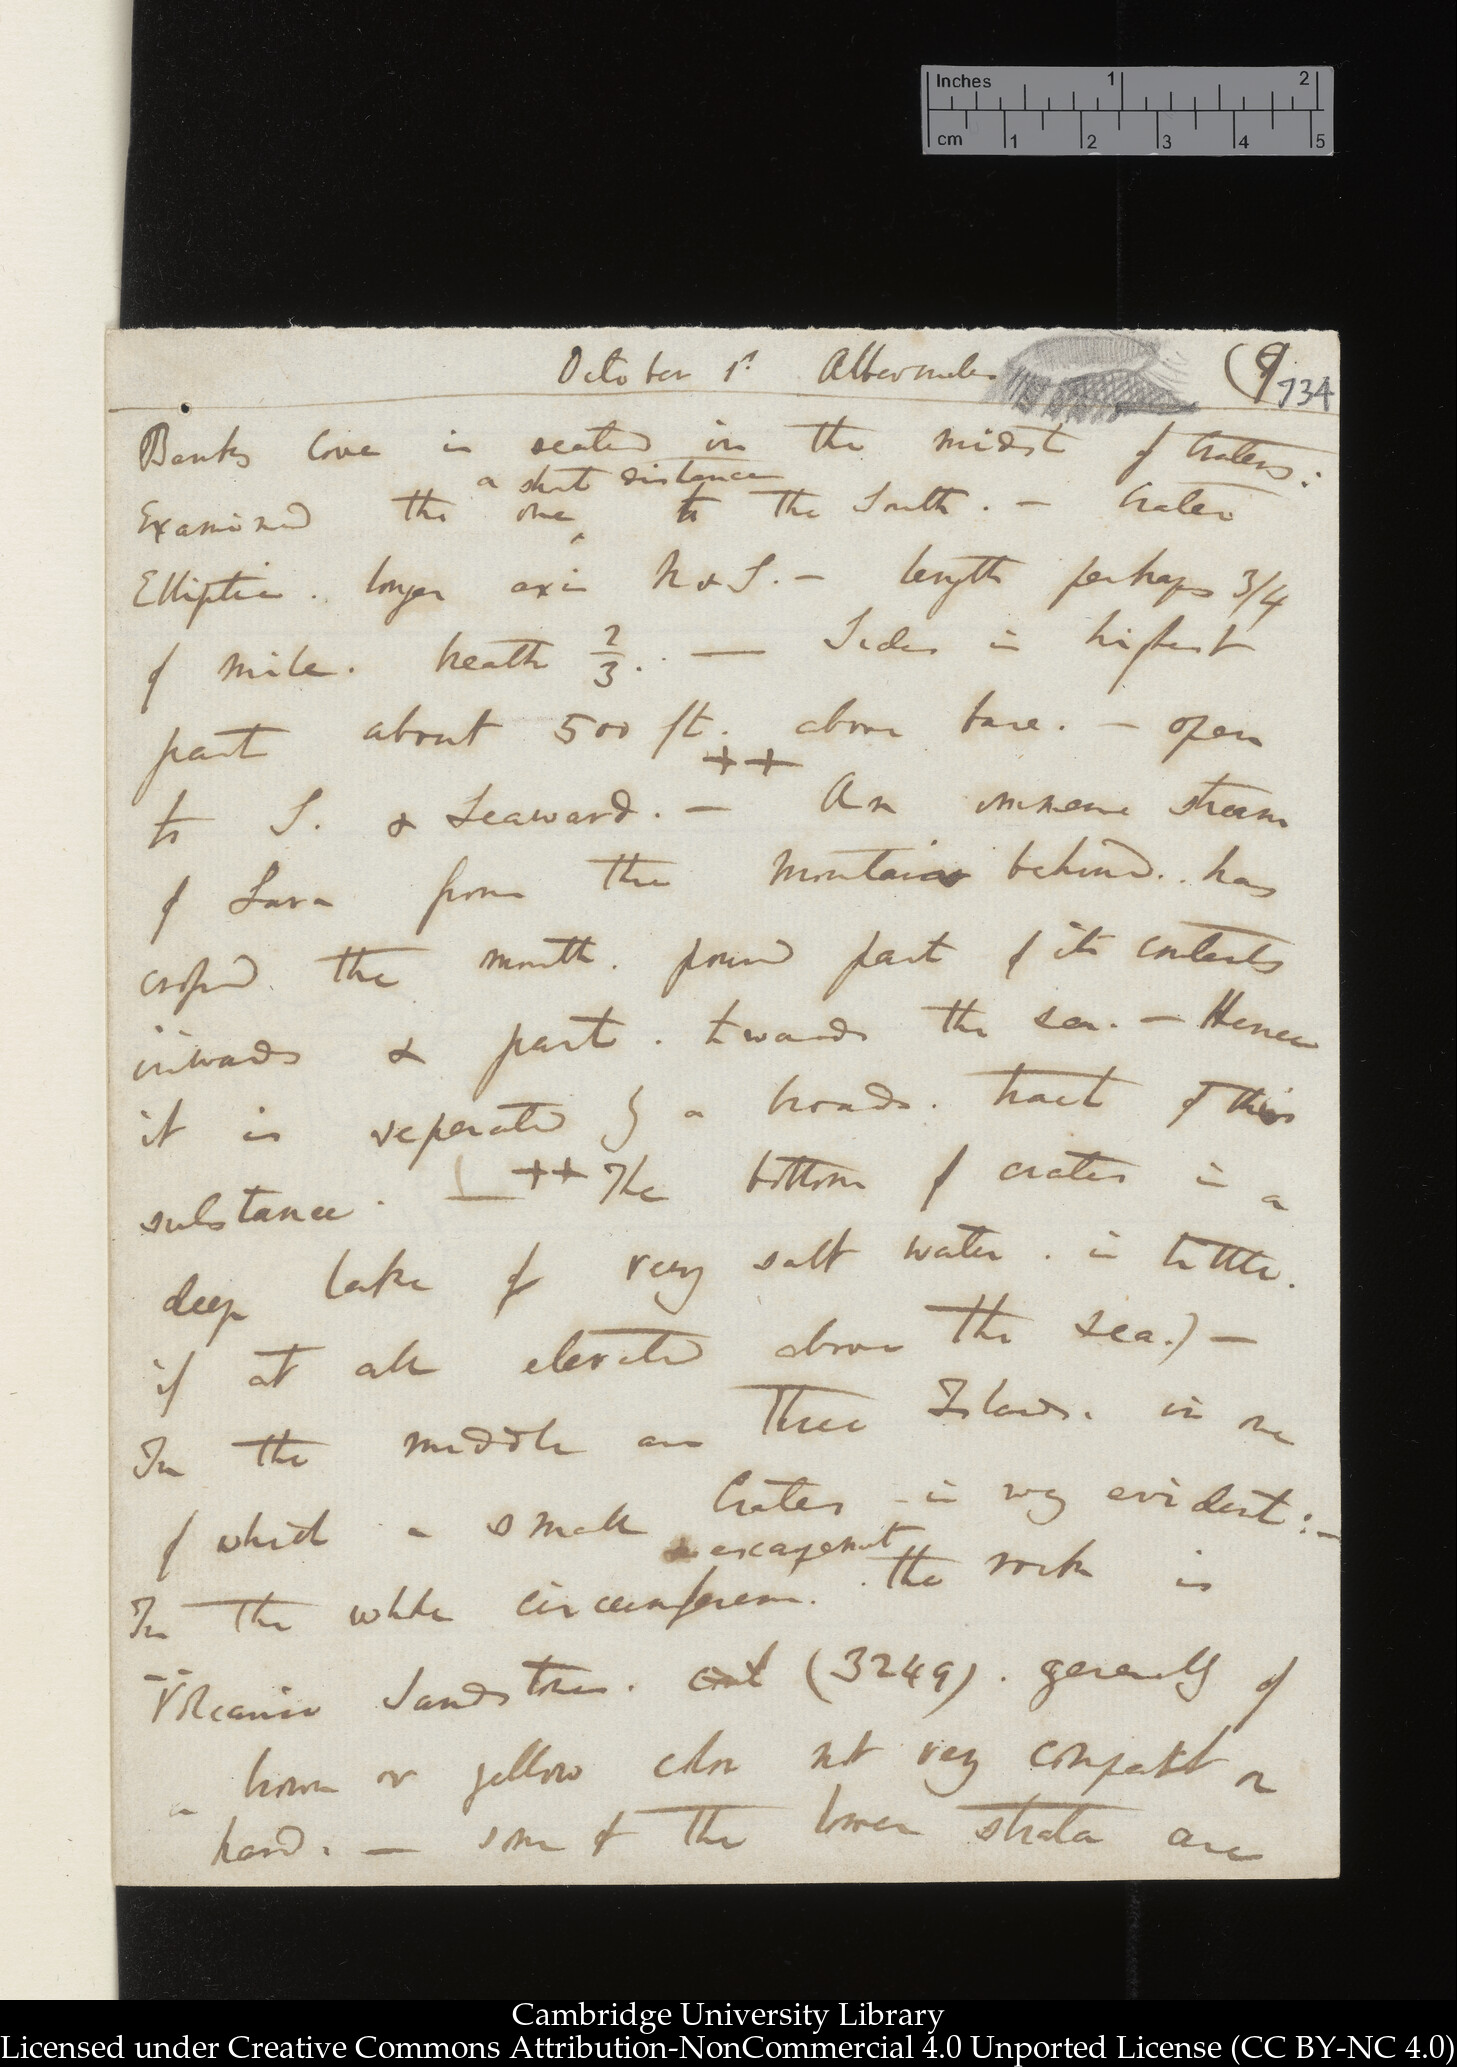 Inches 1 2
cm 1 2 3 4 5
October 1st Albermales (9 734
Banks Cove is seated in the midst of Craters:
a short distance
Examined the one to the South. — Crater
Elliptic. longer axis N & S. — length perhaps 3/4
of mile. breath 2/3. — Sides in highest
part about 500 ft. above base. — open
++
to S. & Seaward. — An immense stream
of Lava from the Mountain behind. has
the mouth. poured part of its contents
inwards & part. towards the sea. — Hence
it is seperated by a broad. tract of this
substance. — ++ The bottom of crater is a
deep lake of very salt water. is little.
if at all elevated above the sea.) —
In the middle are three Islands. in one
of which a small Crater is very evident: —
escarpement
In the whole circumference. the rock is
Volcanic Sandstone. (3249). generally of
a brown or yellow color not very compact or
hard. — some of the lower strata are
Cambridge University Library
Licensed under Creative Commons Attribution-NonCommercial 4.0 Unported License (CC BY-NC 4.0)